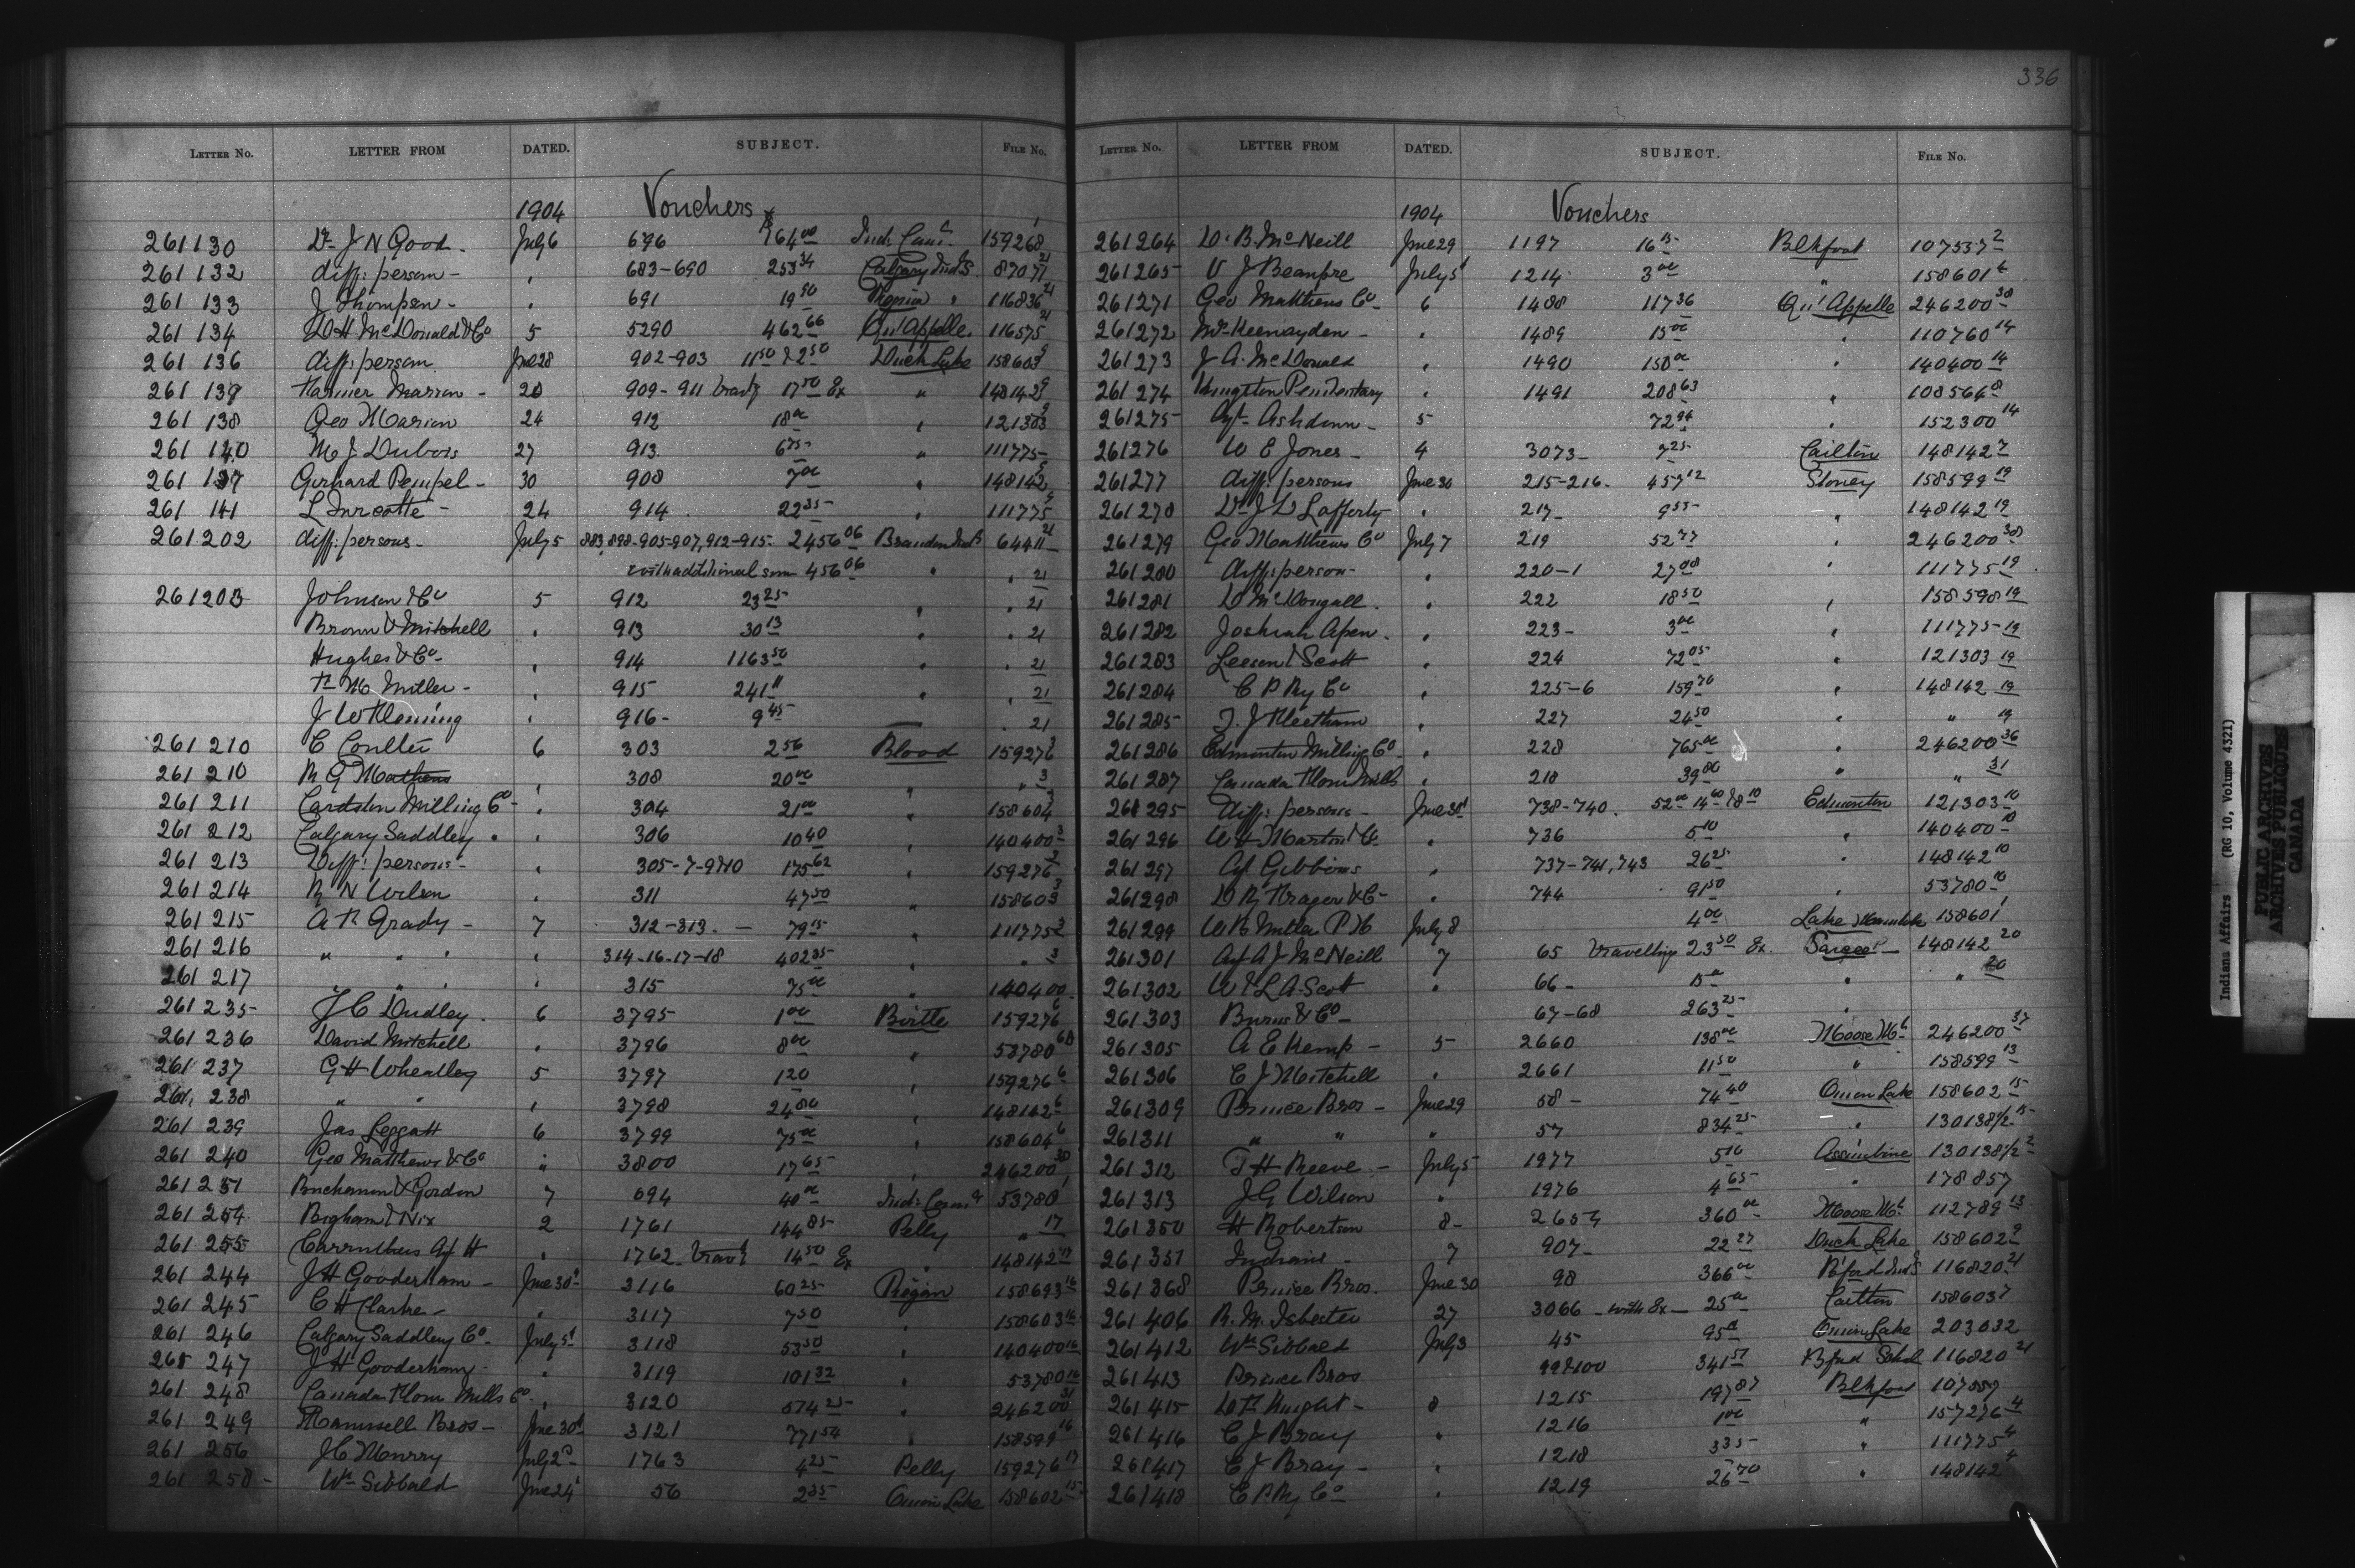 336
LETTER NO. LETTER FROM DATED. SUBJECT. FILE NO.
1904 Vouchers
261130 Dr J N Good - July 6 696 $64 00 159268 1
261 132 diff: person - " 683-690 253 34 Calgary Ind S. 8707 21
261 133 J Thompson - " 691 19 50 Regina " 116836 21
261 134 D H McDonald & Co 5 5290 462 66 Qu'Appelle. 116575 21
261 136 diff: person June 28 902-903 11 50 & 2 50 Duck Lake 158603 9
261 139 20 909-911 trav'g 17 50 Ex " 148142 9
261 138 Geo Marion 24 912 18 00 " 121303 9
261 140 M J Dubois 27 913. 6 75 " 111775
261 137 Gerhard Pempel - 30 908 7 00 " 148142 9
261 141 L Turcotte - 24 914 . 22 35 " 111775 9
261202 diff: persons - July 5 883, 898-905-907, 912-915. 2456 06 Brandon Ind S 64411 21
with additional sum 456 06 " " 21
261203 Johnson & Co 5 912 23 25 " " 21
Brown & Mitchell " 913 30 13 " " 21
Hughes & Co - " 914 1163 50 " " 21
Miller - " 915 241 11 " " 21
J W Fleming " 916 - 9 45 " 21
261 210 C Coulter 6 303 2 56 Blood 159276 3
261 210 M G Mathews " 308 20 00 " " 3
261 211 Cardston Milling Co - " 304 21 00 " 158604 3
261 212 Calgary Saddlery " " 306 10 40 " 140400 3
261 213 Diff: persons - " 305-7-9 & 10 175 62 " 159276 3
261 214 R N Wilson " 311 47 50 " 158603 3
261 215 A F Grady - 7 312-313. - 79 15 " 111775 3
261 216 " " " " 314-16-17-18 402 35 " " 3
261 217 " " " " 315 75 00 " 140400
261 235 J C Dudley . 6 3795 1 00 Birtle 159276 6
261 236 David Mitchell " 3796 8 00 " 53780
261 237 G H Wheatley 5 3797 1 20 " 159276 6
261 238 " " " 3798 24 80 " 148142 6
261 239 Jas Leggatt 6 3799 75 00 " 158604 6
261 240 Geo Matthews & Co " 3800 17 65 " 246200 30
261 251 Buchanan & Gordon 7 694 40 00 53780 1
261 254 Bigham & Nix 2 1761 144 85 Pelly " 17
261 255 Carruthers Agt H " 1762 trav'g 14 50 Ex " 148142 17
261 244 J H Gooderham - June 30 3116 60 25 Piegan 158693 16
261 245 C H Clarke - " 3117 7 50 " 158603 16
261 246 Calgary Saddlery Co - July 5 3118 53 50 " 140400 16
261 247 J H Gooderham - " 3119 101 32 " 53780 16
261 248 Canada Flour Mills Co - " 3120 574 25 " 246200 31
261 249 Maunsell Bros - June 30 3121 771 54 " 158599 16
261 256 J C Murry July 2 1763 4 25 Pelly 159276 17
261 258 - Wm Sibbald June 24 56 2 35 Onion Lake 158602 15
LETTER NO. LETTER FROM DATED. SUBJECT. FILE NO.
1904 Vouchers
261264 D. B. McNeill June 29 1197 16 15 Blkfoot 107537 2
261265 V J Beaupre July 5 1214 3 00 " 158601 4
261271 Geo Matthews Co - 6 1488 117 36 Qu'Appelle 246200 38
261272 - " 1489 15 00 " 110760 14
261273 J A. McDonald " 1490 150 00 " 140400 14
261274 Kingston Penitentiary " 1491 208 63 " 108566 8
261275 Agt. Ashdown - 5 72 94 " 152300 14
261276 W E Jones - 4 3073 - 7 25 Carlton 148142 7
261277 diff: persons June 30 215-216 - 457 12 Stoney 158599 19
261278 Dr J D Lafferty " 217 - 9 55 " 148142 19
261279 Geo Matthews Co July 7 219 52 77 " 246200 38
261280 diff: person - " 220-1 27 08 " 111775 19
261281 D McDougall . " 222 18 50 " 158598 19
261282 Joshiah Apen - " 223 - 3 00 " 111775 19
261283 Leeson & Scott " 224 72 05 " 121303 19
261284 C P Ry Co " 225-6 159 70 " 148142 19
261285 T. J Fleetham " 227 24 50 " " 19
261286 Edmonton Milling Co - " 228 765 00 " 246200 36
261287 Canada Flour Mills " 218 39 80 " " 31
261295 diff: persons - June 30 738-740. 52 00 14 60 & 8 10 Edmonton 121303 10
261296 W H Martin & Co " 736 5 10 " 140400 10
261297 Agt Gibbons " 737-741, 743 26 25 " 148142 10
261298 D R Frazer & Co - " 744 91 50 " 53780 10
261299 W R Miller P M July 8 4 00 158601 1
261301 Agt A J McNeill 7 65 travelling 23 50 Ex. Sarcee - 148142 20
261302 W & L A Scott " 66 - 15 00 " " 20
261303 Burns & Co - 67-68 263 25 "
261305 A E Kemp - 5 2660 138 00 Moose Mt - 246200 37
261306 C J Mitchell " 2661 11 50 " 158599 13
261309 Prince Bros - June 29 58 - 74 40 Onion Lake 158602 15
261311 " " " 57 834 25 " 130138 1/2 15
261312 T H Reeve - July 5 1977 5 10 Assinibine 130138 1/2 2
261313 J G Wilson " 1976 4 65 " 178857
261350 H Robertson 8 - 2659 360 00 Moose Mt. 112789 13
261351 Indians . 7 907 - 22 27 Duck Lake 158602 9
261368 Prince Bros. June 30 98 366 00 B'ford Ind S 116820 21
261406 R. M. Isbester 27 3066 - with Ex - 25 00 Carlton 158603 7
261412 Wm Sibbald July 3 45 95 00 Onion Lake 203032
261413 Prince Bros 99 & 100 341 57 B'ford School 116820 21
261415 Knight - 8 1215 197 87 Blkfoot
261416 C J Bray " 1216 1 00 " 157276 4
261417 C J Bray - " 1218 3 35 " 111775 4
261418 C P Ry Co " 1219 26 70 " 148142 4
Indians Affairs (RG 10, Volume 4321)
PUBLIC ARCHIVES
ARCHIVES PUBLIQUES
CANADA